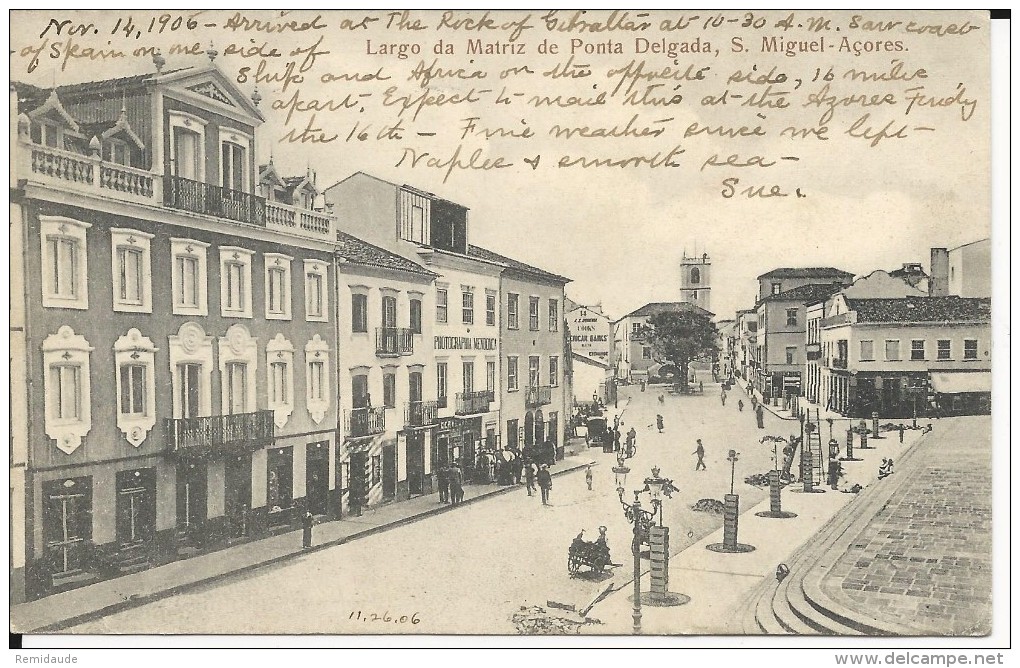 Nov. 14, 1906 - Arrived at The Rock of Gibraltar at 10-30 A.M. Saw coast
of Spain on one side of
Largo da Matriz de Ponta Delgada, S. Miguel-Açores.
Ship and Africa on the opposite side, 16 miles
apart. Expect to mail this at the Azores Friday
the 16th - Fine weather since we left
Naples & smooth sea -
Sue.
PHOTOGRAPHIA MENDONÇA
14
11.26.06
© Remidaude
www.delcampe.net